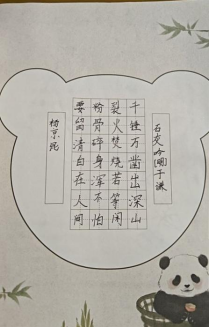 石灰吟(明)于谦
千锤万凿出深山
裂火焚烧若等闲
粉骨碎身浑不怕
要留清白在人间